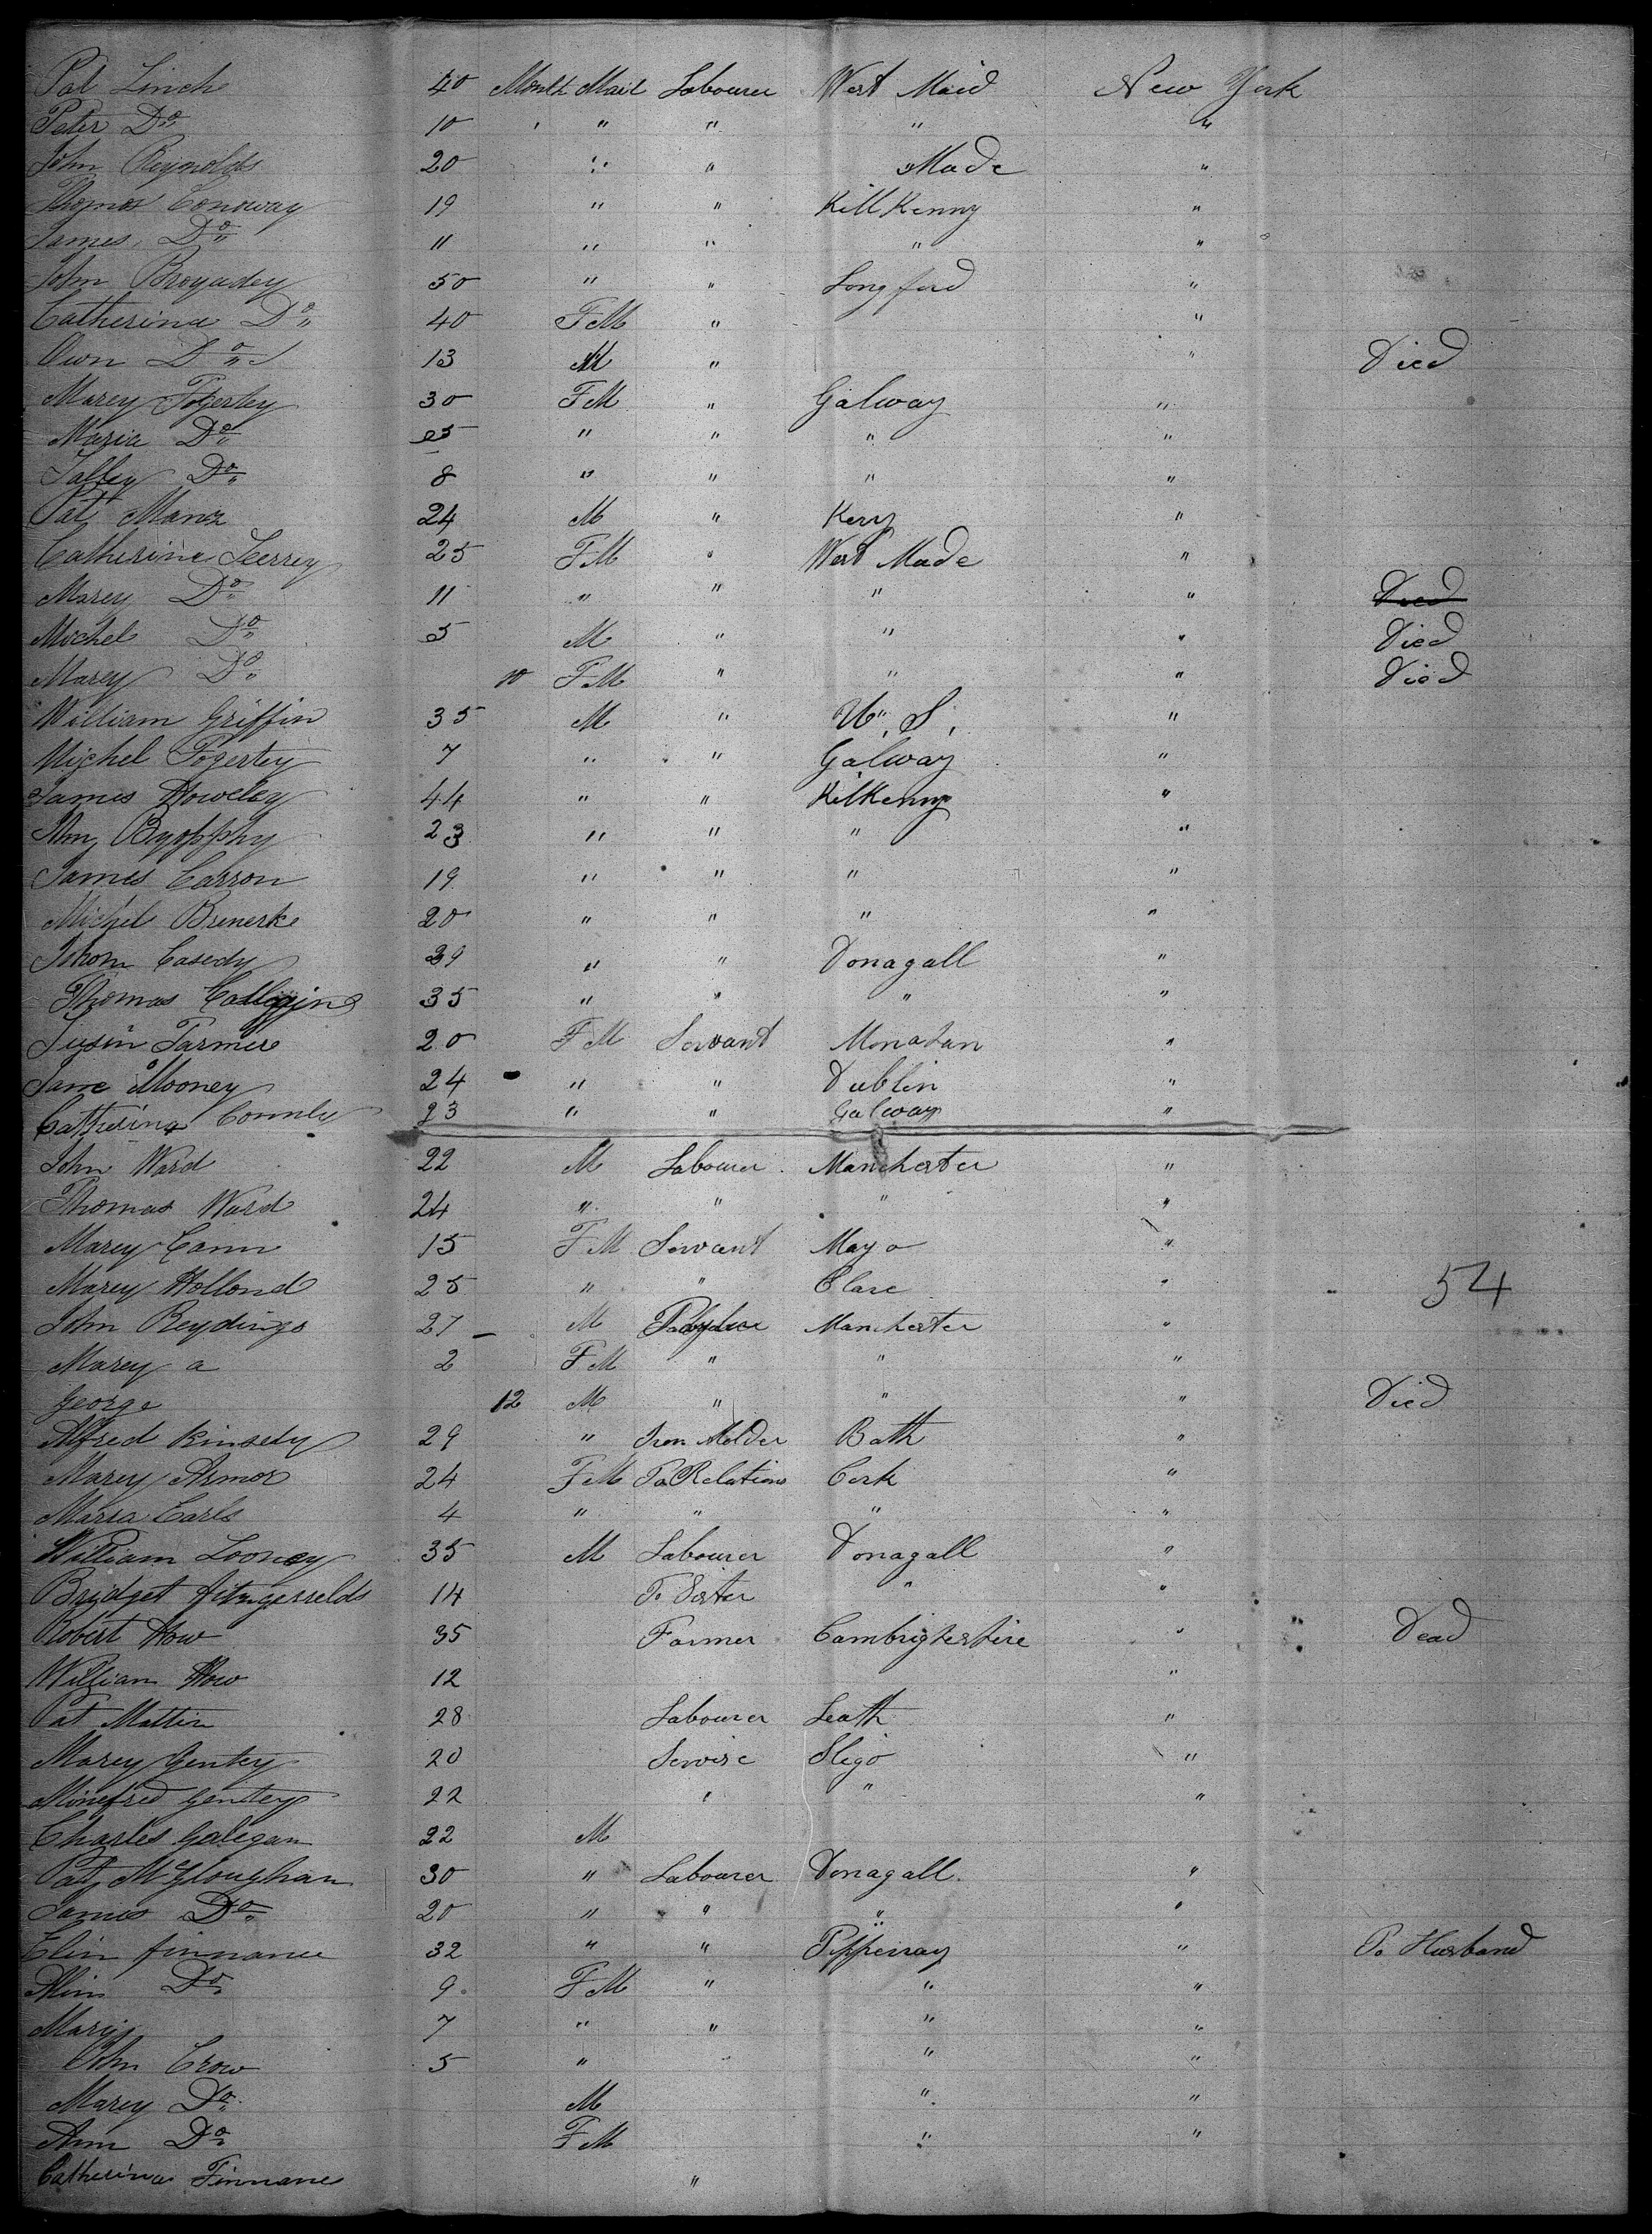 Pat Linch 40 Month Mail Labourer West Maid New York
Peter Do 10 " " " "
John Reynolds 20 " " " Made "
Thomas Conoway 19 " " KillKenny "
James Do 11 " " " "
John 50 " " Longford "
Catherina Do 40 FM " "
Own Do 13 M " " Died
Marey Fogertey 30 FM " Galway "
Maria Do 25 " " " "
Do 8 " " " "
Pat 24 M " Kerry "
Catherine 25 FM " West Made "
Marey Do 11 " " " " Died
Michel Do 5 M " " " Died
Marey Do 10 FM " " " Died
William Griffin 35 M " U. S. "
Michel Fogertey 7 " " Galway "
James Howeley 44 " " KilKenny "
23 " " " "
James Carron 19 " " " "
Michel 20 " " " "
Casedy 29 " " Donagall "
Thomas 35 " " " "
Susin Farmer 20 FM Servant Monahan "
Jane Mooney 24 " " Dublin "
Catherina Connly 23 " " Galway "
John Ward 22 M Labourer Manchester "
Thomas Ward 24 " " " "
Marey Cann 15 FM Servant Mayo "
Marey Hollond 25 " " Clare " 54
John Reydings 27 M Manchester "
Marey a 2 FM " " "
George 12 M " " " Died
Alfred Kinsely 29 " Iron Molder Bath "
Marey Armor 24 FM To Relations Cork "
Maria Carls 4 " " " "
William Looney 35 M Labourer Donagall "
Bridget fitzgerrelds 14 To Sister " "
Robert How 35 Farmer Cambrigheshire " Dead
William How 12 "
Pat Mattin 28 Labourer Leath "
Marey Gentey 20 Servise Sligo "
Minefred Gentey 22 " " "
Charles Galegan 22 M
Pat McGloughan 30 " Labourer Donagall "
James Do 20 " " " "
Elin finnanee 32 " " Tipperray " To Husband
Do 9 FM " " "
Marey 7 " " " "
John Crow 5 " " "
Marey Do M " "
Ann Do FM " "
Catherina Finnane "